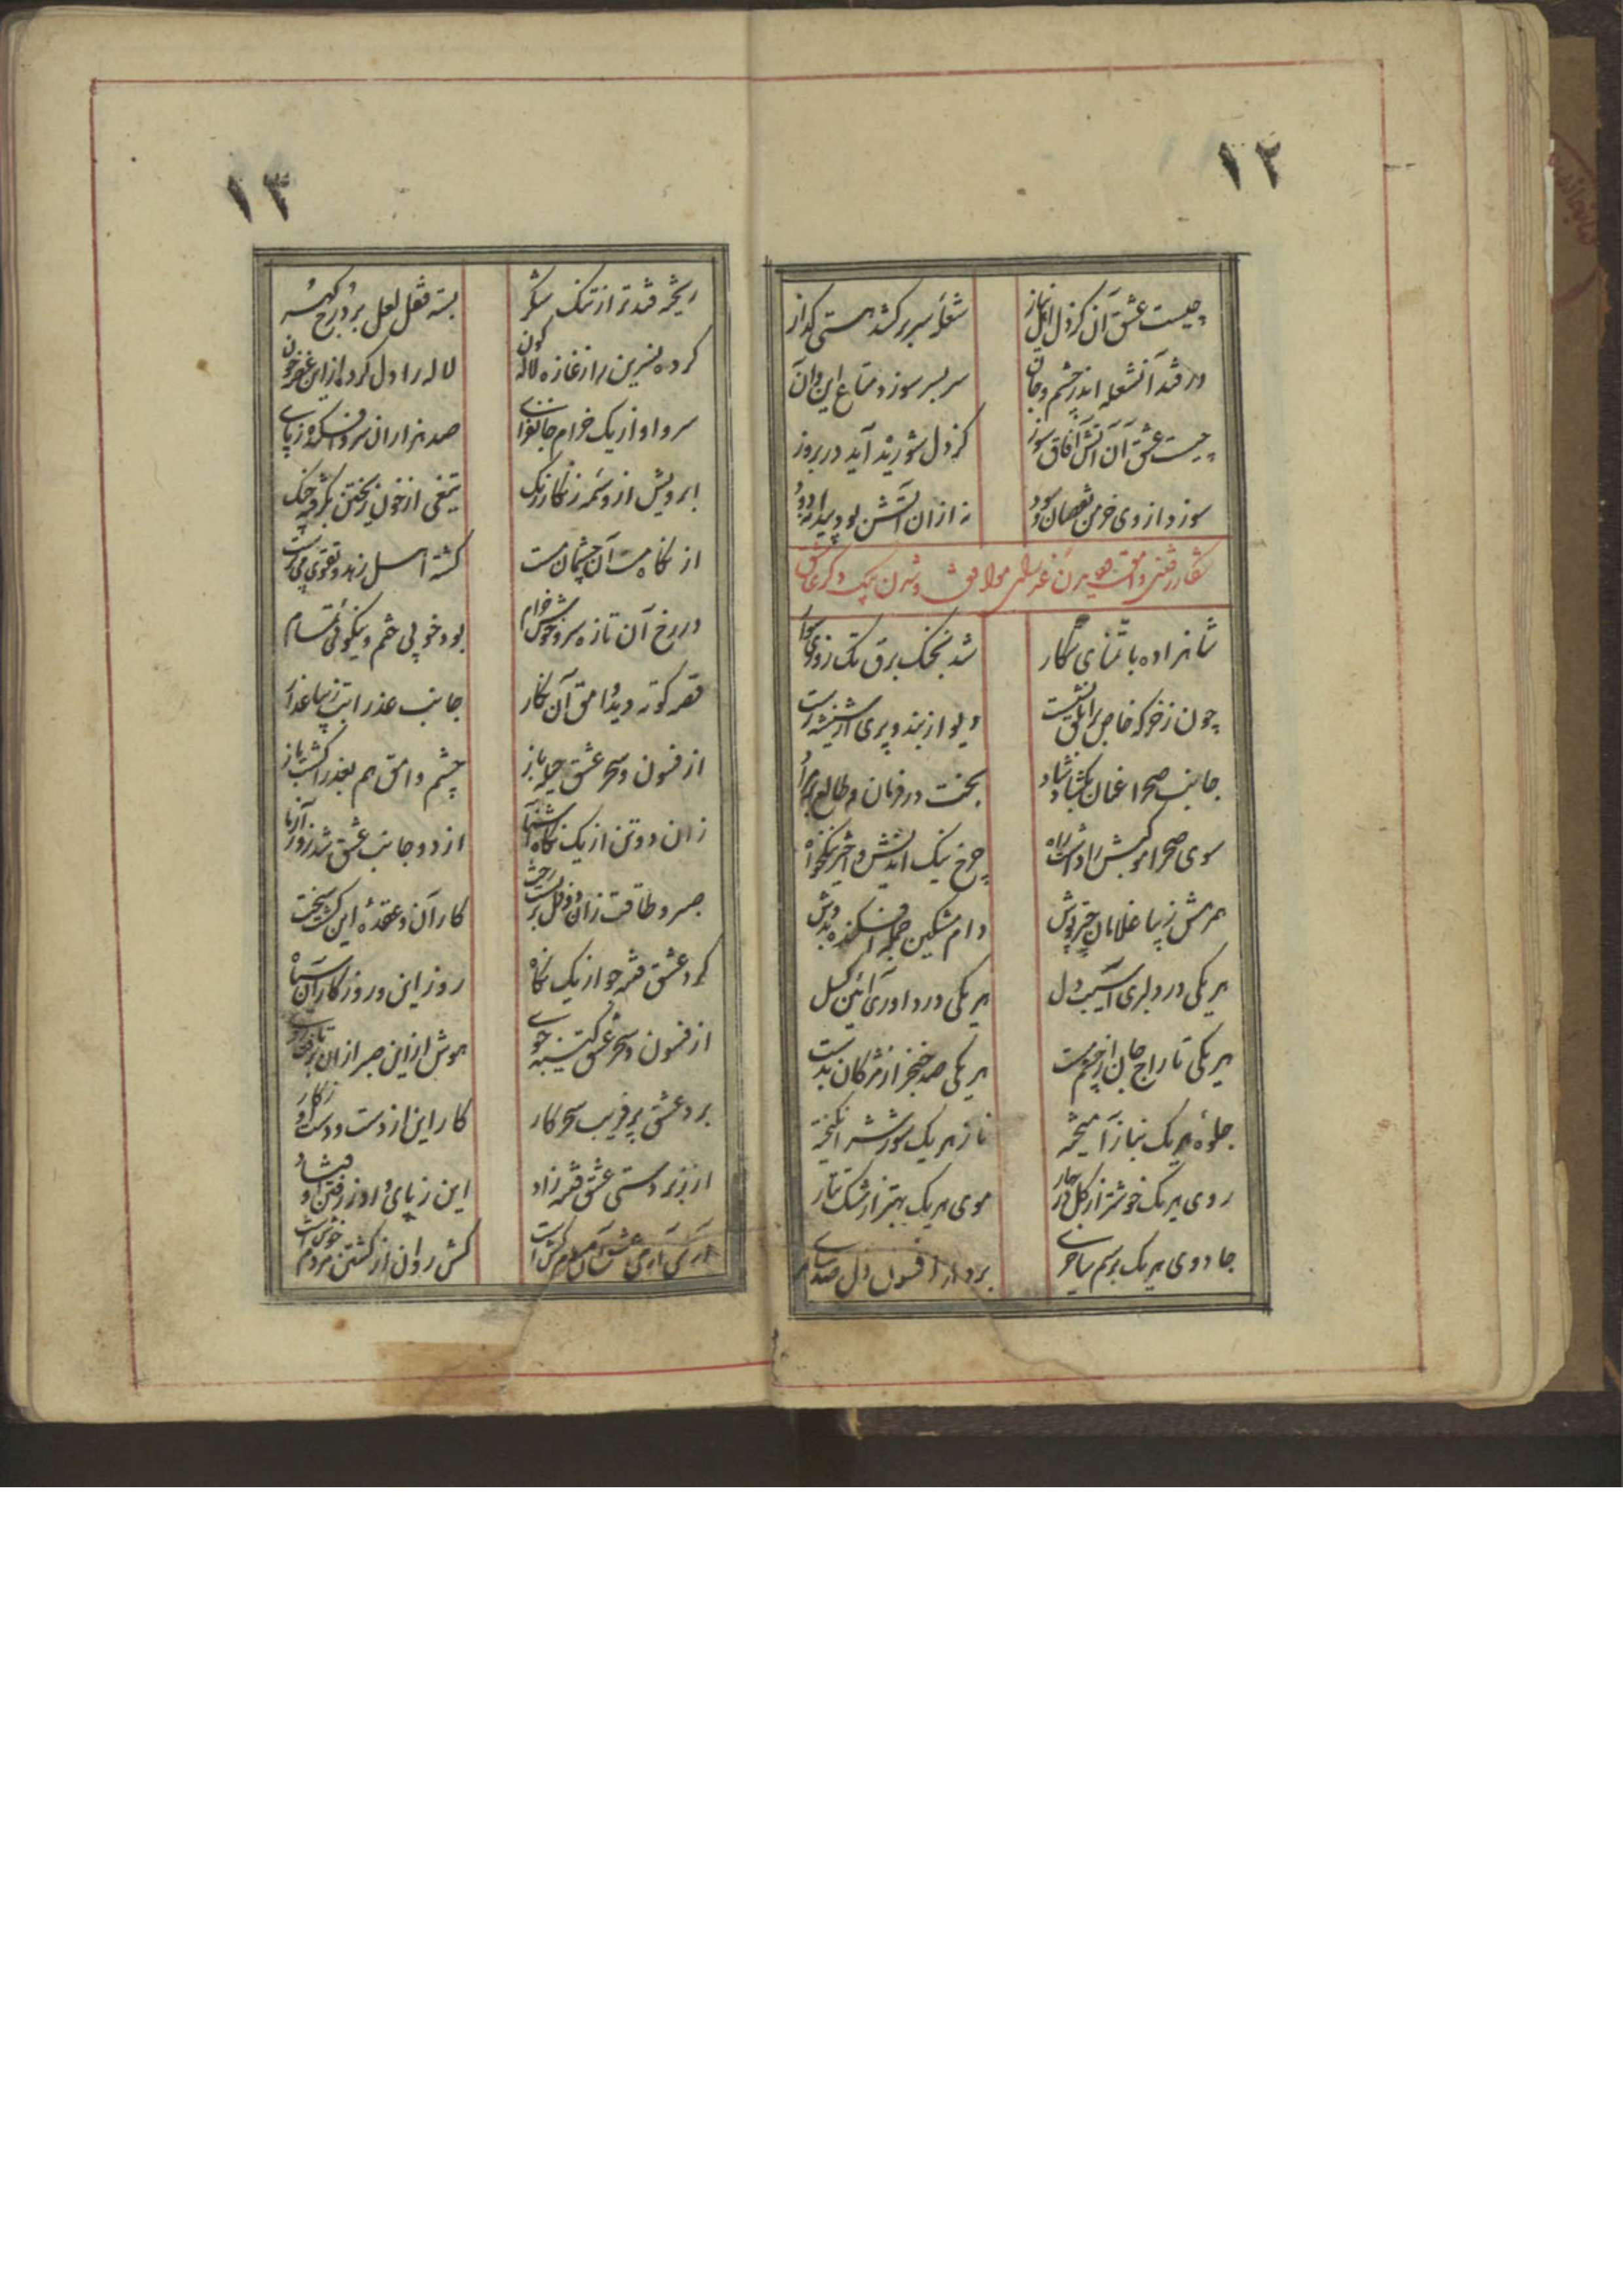 ۱۲
چیست عشق آن کز دل اهل نیاز
شعله سر برکشد هستی گداز
در فتد آنشعله اندر چشم و جان
سر بسر سوزد متاع این و آن
چیست عشق آن آتش آفاق سوز
کز دل شوریده آید در بروز
سوزد از وی خرمن نقصان و سود
نه از آن آتش بود پیدا نه دود
بشکار رفتن وامق و دیدن عذرا
شاهزاده با تمنای شکار
شد بخنگ برق تک روزی سوار
چون ز خرگه خاص بر ابلق نشست
دیو از بند و پری از شیشه رست
جانب صحرا عنان بگشاد شاد
بخت در فرمان و طالع بر مراد
سوی صحرا موکبش را داشت راه
چرخ نیک اندیش و اختر نیکخواه
همرهش زیبا غلامان خزپوش
دام مشکین جمله افکنده بدوش
هر یکی در دلبری آسیب دل
هر یکی در داوری آئین گسل
هر یکی تاراج جان از چشم مست
هر یکی صد خنجر از مژگان بدست
جلوه هر یک بناز آمیخته
ناز هر یک شورش انگیخته
روی هر یک خوشتر از گل در بهار
موی هر یک بهتر از مشک تتار
جادوی هر یک برسم ساحری
برده از افسون دل صد سامری
۱۳
ریخته قند تر از تنگ شکر
بسته قفل لعل بر درج گهر
کرده نسرین را ز غازه لاله گون
لاله را دل کرده از این غصه خون
سرو او از یک خرام جانفزای
صد هزاران سرو افکنده ز پای
ابرویش از وسمه زنگار رنگ
تیغی از خون ریختن بگرفته زنگ
از نگاه مست آن چشمان مست
گشته اهل زهد و تقوی می پرست
در رخ آن تازه سرو خوش خرام
بود خوبی ختم و نیکوئی تمام
قصه کوته دید وامق آن نگار
جانب عذرا بت زیبا عذار
از فسون و سحر عشق حیله باز
چشم وامق هم بعذرا گشت باز
زان دو تن از یک نگاه آشنا
از دو جانب عشق شد زور آزما
صبر و طاقت زان دو دل بربست رخت
کار آن و عقده این گشت سخت
کرد عشق فتنه جو از یک نگاه
روز این و روزگار آن سیاه
از فسون و سحر عشق کینه جوی
هوش از این صبر از آن برتافت روی
برد عشق پر فریب سحر کار
کار این از دست و دست او ز کار
از زبردستی عشق فتنه زاد
این ز پای و او ز رفتن اوفتاد
آری آری عشق آن مردم کش است
کش روان از کشتن مردم خوش است